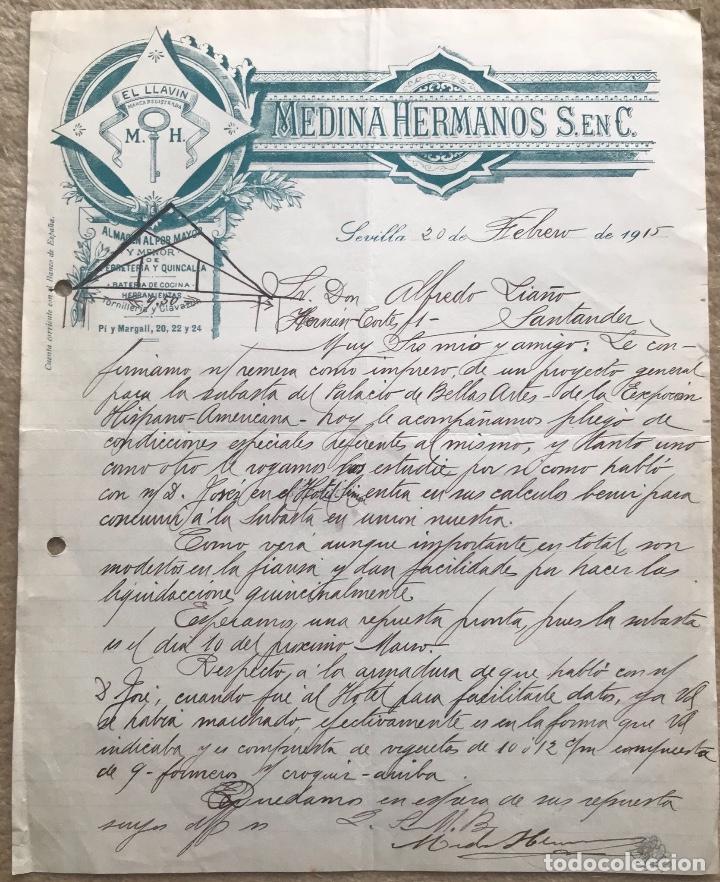 EL LLAVIN
MARCA REGISTRADA
M. H.
MEDINA HERMANOS S. EN C.
ALMACEN AL POR MAYOR
Y MENOR
DE
FERRETERIA Y QUINCALLA
BATERIA DE COCINA
HERRAMIENTAS
Tornillería y Clavazón
Pí y Margall, 20, 22 y 24
Cuenta corriente con el Banco de España.
9.50
Sevilla 20 de Febrero de 1915
Sr. Don Alfredo Liaño
Hernán-Cortés, 1- Santander
Muy Sr. mio y amigo: Le con-
firmamos n/ remesa como impreso, de un proyecto general
para la subasta del Palacio de Bellas Artes - de la Exposción
Hispano-Americana - hoy le acompañamos pliego de
condicciones especiales referentes al mismo, y tanto uno
como otro le rogamos los estudie por si como habló
con n/ D. José en el Hotel Simon entra en sus calculos benir para
concurrir á la subasta en union nuestra.
Como verá aunque importante en total son
modestos en la fianza y dan facilidades por hacer las
liquidacciones quincenalmente.
Esperamos, una repuesta pronta, pues la subasta
es el dia 10 del proximo Marzo.
Respecto, á la armadura de que habló con n/
D José, cuando fué al Hotel para facilitarle datos, ya Vd
se habia marchado, efectivamente es en la forma que Vd
indicaba y es compuesta de viguetas de 10 ó 12 c/m compuesta
de 9 - formeros s/ croquis - arriba.
Quedamos en espera de sus repuesta
suyos
Q. S. M. B.
todocoleccion
todocoleccion.net